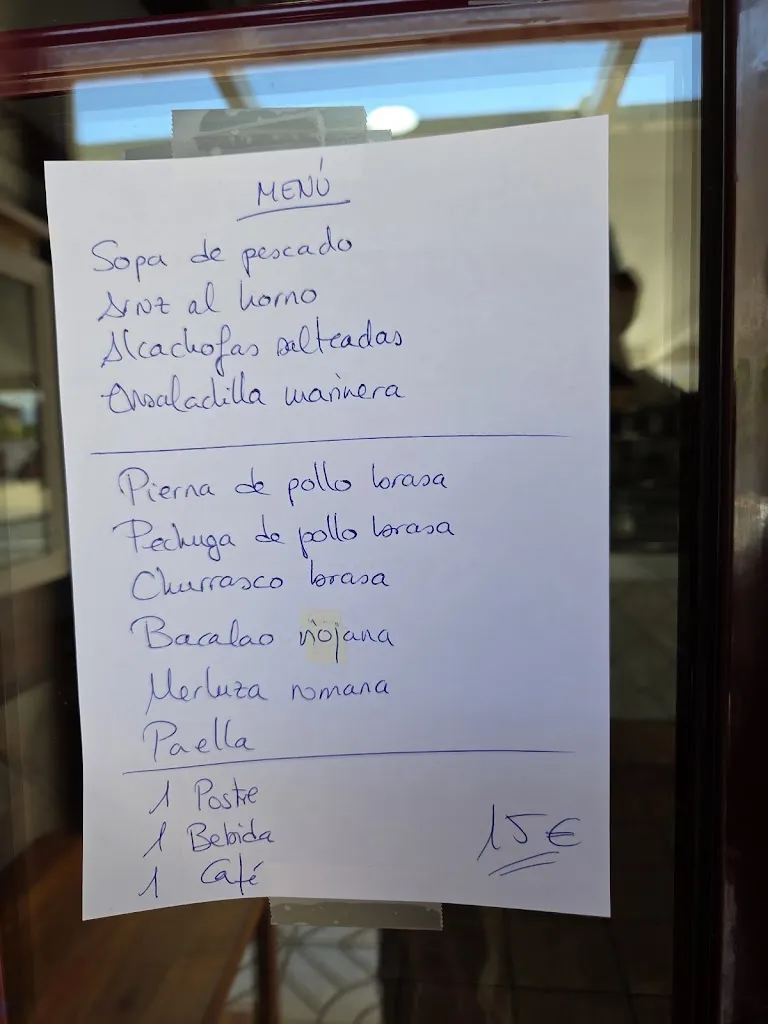 MENÚ
Sopa de pescado
Arroz al horno
Alcachofas salteadas
Ensaladilla marinera
Pierna de pollo brasa
Pechuga de pollo brasa
Churrasco brasa
Bacalao riojana
Merluza romana
Paella
1 Postre
1 Bebida
1 Café
15 €